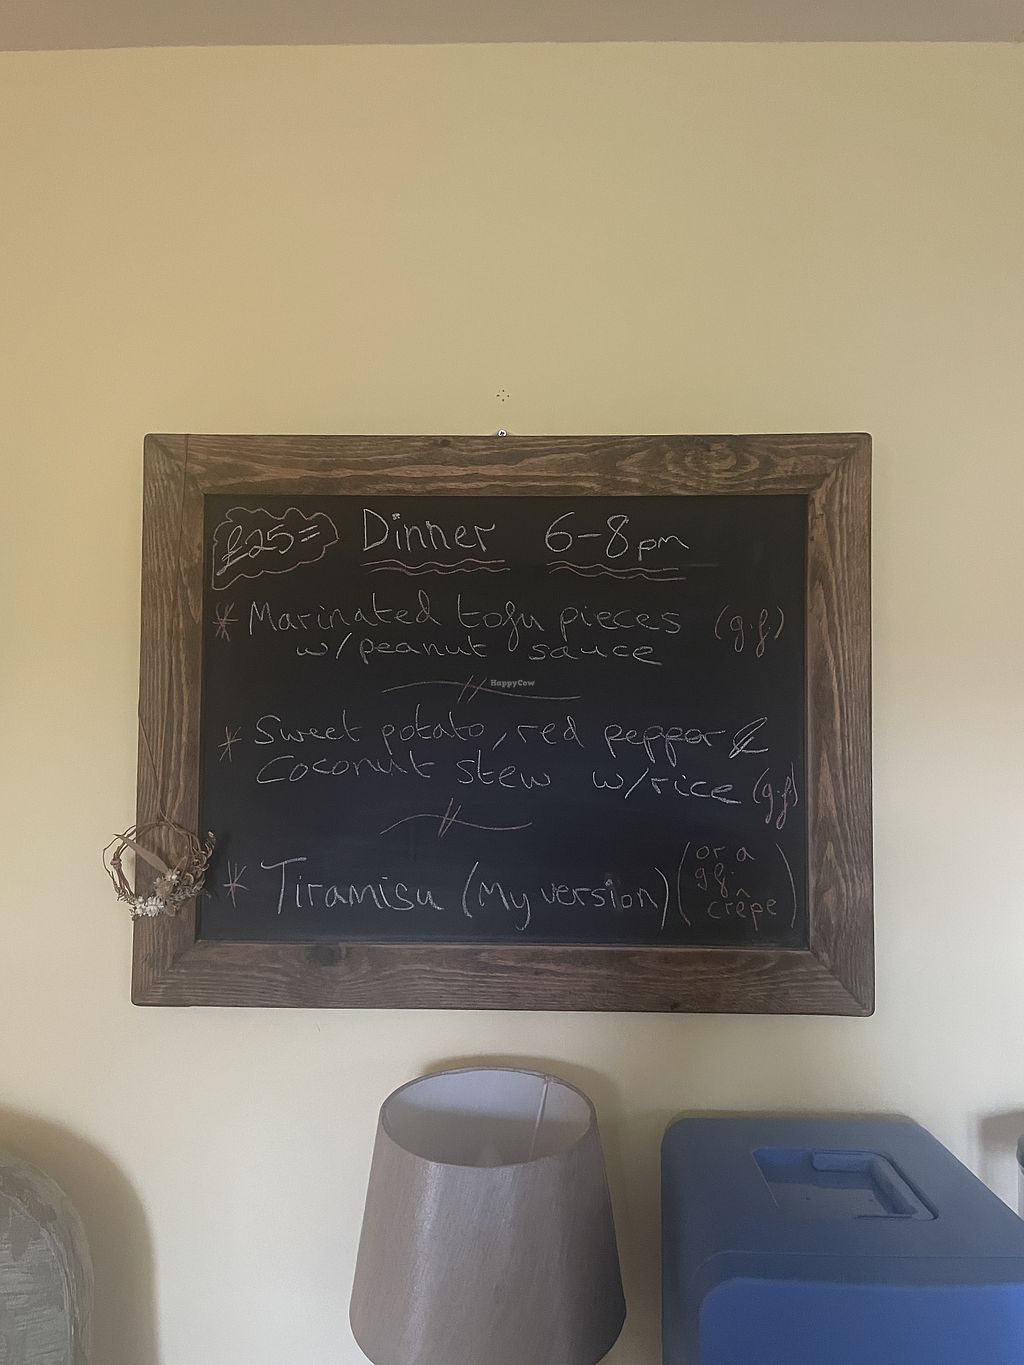 £25= Dinner 6-8pm
* Marinated tofu pieces (g.f.)
w/peanut sauce
HappyCow
* Sweet potato, red pepper &
Coconut stew w/rice (g.f.)
* Tiramisu (My version) (or a
g.f.
crêpe)